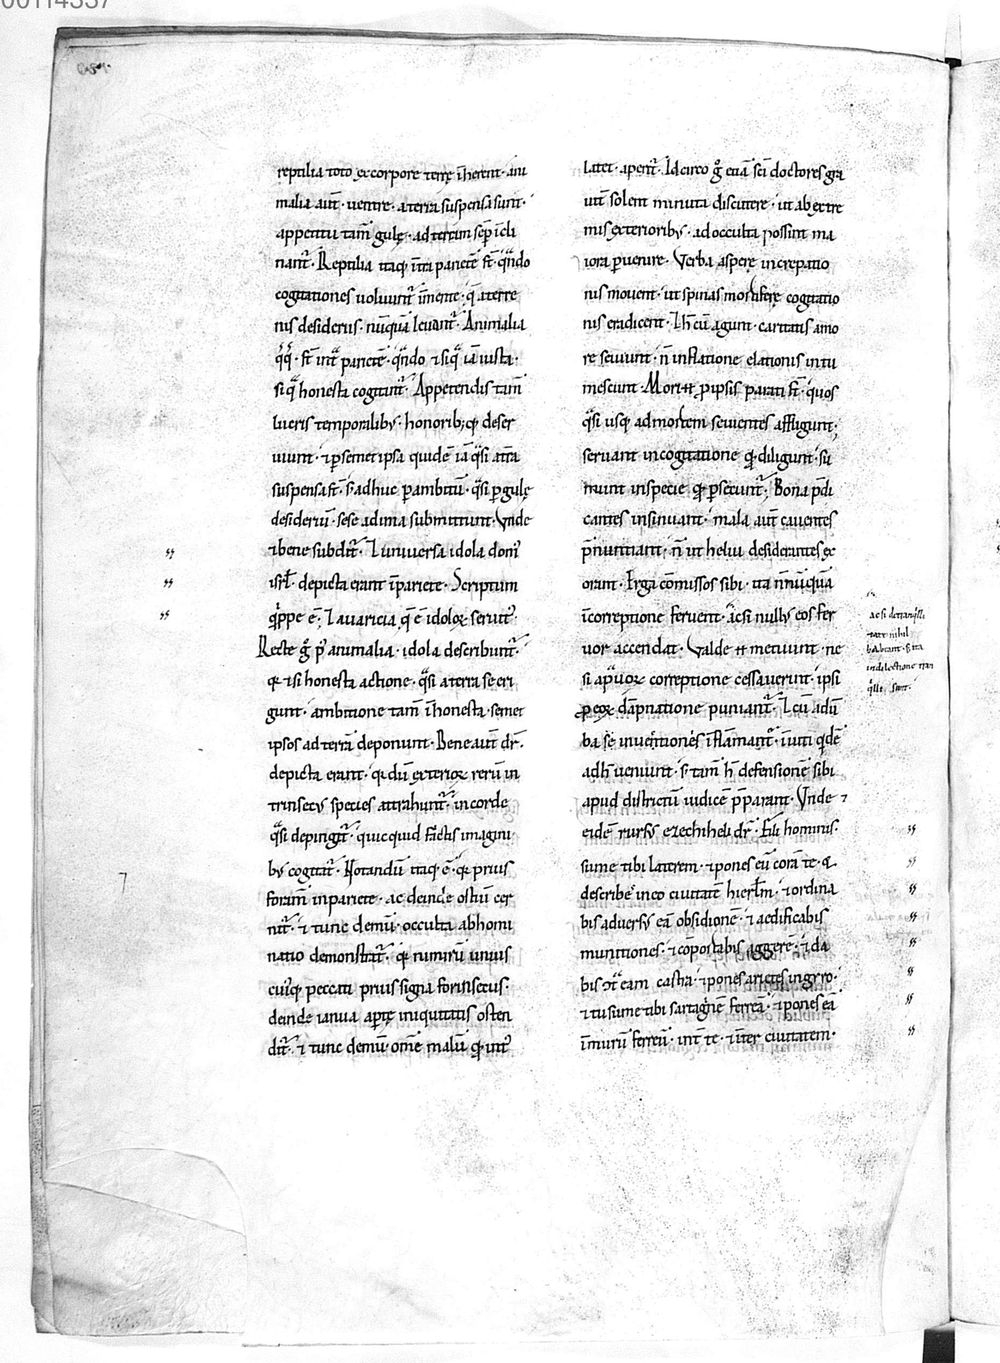 reptilia toto ex corpore terrę īherent · ani
malia aut̄ · uentre · a terra suspensa sunt ·
appetitu tam̄ gulę · ad terram sēp īcli
nant̉ · Reptilia itaq; īt̉ parietē st̄ · qn̄do
cogitationes uoluunt̉ īmente · q̄ a terre
nis desideriis · nūquā leuant̉ · Animalia
st̄ int̉ parietē · qn̄do ⁊ siq̄ iā iusta ·
si q̄ honesta cogitant̉ · Appetendis tam̄
lucris temporalib; · honorib;q; deser
uiunt · ⁊ p semet ipsa quidē iā q̄si alta
suspensa st̄ · s; adhuc p ambitū · q̄si p gulę
desideriū · sese ad ima submittunt · Vnde
⁊ bene subdit̉ · ⁊ uniuersa idola dom̉
isrl̄ · depicta erant ī pariete · Scriptum
q̄ppe ē · ⁊ auaricia q̄ ē idoloꝝ seruit̉
Recte g̊ p̉ animalia · idola describunt̉ ·
q; ⁊ si honesta actione · q̄si a terra se eri
gunt · ambitione tam̄ īhonesta · semet
ipsos ad terrā deponunt · Bene aut̄ dr̄ ·
depicta erant · q; dū exterioꝝ rerū in
trinsecus species attrahunt̉ · in corde
q̄si depingit̉ · quicquid fictis imagini
b; cogitat̉ · Notandū itaq; ē · q; prius
foram̄ in pariete · ac deinde ostiū cer
nit̉ · ⁊ tunc demū · occulta abhomi
natio demonstrat̉ · q; nimirū unius
cuiq; peccati prius signa forinsecus ·
deinde ianua aptę iniquitatis osten
dit̉ · ⁊ tunc demū om̄e malū qđ int̉
latet · aperit̉ · Idcirco g̊ etiā sc̄i doctores ita
ut̄ solent minuta discutere · ut ab extre
mis exteriorib; · ad occulta possint ma
iora puenire · Verba asperę increpatio
nis mouent · ut spinas mortiferę cogitatio
nis eradicent · ⁊ h̄ cū agunt · caritatis amo
re seuiunt · n̄ inflatione elationis intu
mescunt · Mori ē p ipsis parati st̄ · quos
q̄si usq; ad mortem seuientes affligunt ·
seruant in cogitatione qđ diligunt · su
munt in specie qđ psecunt̉ · Bona p̄di
cantes insinuant · mala aut̄ cauentes
p̄nuntiant · n̄ ut helui desiderantes ex
orant · Erga cōmissos sibi · ita n̄nūquā
ī correptione feruent · ac si null; eos fer
uor accendat · Valde ē metuunt · ne
si a prauoꝝ correptione cessauerint · ipsi
p eoꝝ dāpnatione puniant̉ · ⁊ cū ad ū
ba se inuentionis īflāmant̉ · īuiti qđē
ad h̄ ueniunt · s; tam̄ h̄ defensionē sibi
apud districtū iudicē p̄parant · Vnde ⁊
eidē rursus ezechiheli dr̄ · Fili hominis ·
sume tibi laterem · ⁊ pones eū corā te · &
describes in eo ciuitatē hierlm̄ · ⁊ ordina
bis aduersus eā obsidionē · ⁊ aedificabis
munitiones · ⁊ cōportabis aggerē · ⁊ da
bis ꝯtra eam castra · ⁊ pones arietes in gyro ·
⁊ tu sume tibi sartaginē ferreā · ⁊ pones eā
ī murū ferreū · int̉ te · ⁊ int̉ ciuitatem ·
ac si de tranq̉lli
tate nihil
habeant · s; ita
in dilectione tran
q̉lli · sunt ·